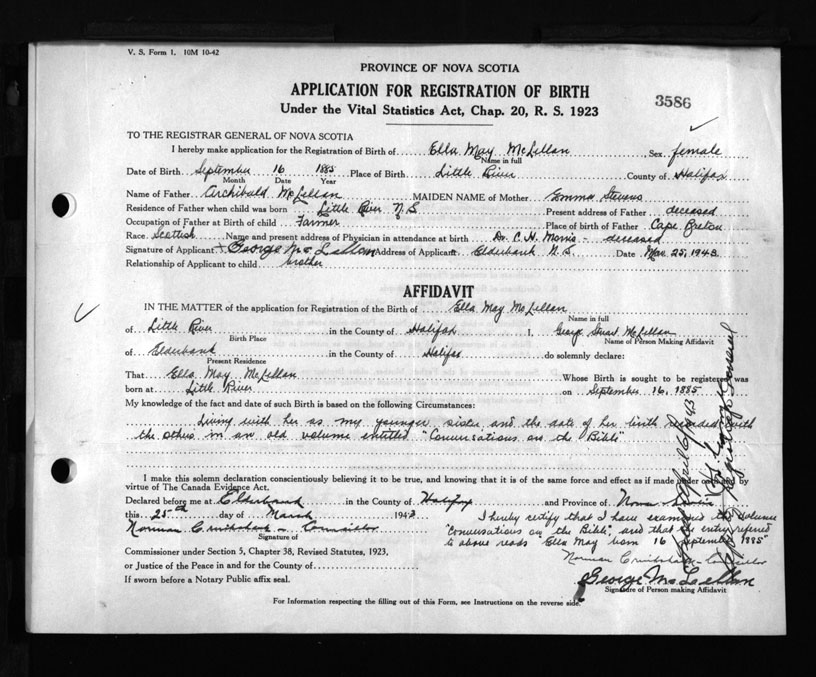 V. S. Form 1. 10M 10-42
PROVINCE OF NOVA SCOTIA
APPLICATION FOR REGISTRATION OF BIRTH
Under the Vital Statistics Act, Chap. 20, R. S. 1923
3586
TO THE REGISTRAR GENERAL OF NOVA SCOTIA
I hereby make application for the Registration of Birth of Ella May McLellan Sex female
Name in full
Date of Birth September 16 1885 Place of Birth Little River County of Halifax
Month Date Year
Name of Father Archibald McLellan MAIDEN NAME of Mother Emma Stevens
Residence of Father when child was born Little River N.S. Present address of Father deceased
Occupation of Father at Birth of child Farmer Place of birth of Father Cape Breton
Race Scottish Name and present address of Physician in attendance at birth Dr. C. H. Morris - deceased
Signature of Applicant George McLellan Address of Applicant Elderbank N.S. Date Mar. 25, 1943
Relationship of Applicant to child brother
AFFIDAVIT
IN THE MATTER of the application for Registration of the Birth of Ella May McLellan
Name in full
of Little River in the County of Halifax I, George Stuart McLellan
Birth Place Name of Person Making Affidavit
of Elderbank in the County of Halifax do solemnly declare:
Present Residence
That Ella May McLellan Whose Birth is sought to be registered was
born at Little River on September 16, 1885
My knowledge of the fact and date of such Birth is based on the following Circumstances:
Living with her as my younger sister and the date of her birth recorded with
the others in an old volume entitled "Conversations on the Bible"
I make this solemn declaration conscientiously believing it to be true, and knowing that it is of the same force and effect as if made under oath and by
virtue of The Canada Evidence Act.
Declared before me at Elderbank in the County of Halifax and Province of Nova Scotia
this 25th day of March 1943
I hereby certify that I have examined the volume
Norman Cruikshank - Councillor
"Conversations on the Bible", and that the entry referred
Signature of
to above reads Ella May born 16 September 1885"
Commissioner under Section 5, Chapter 38, Revised Statutes, 1923,
Norman Cruikshank - Councillor
or Justice of the Peace in and for the County of
George McLellan
If sworn before a Notary Public affix seal.
Signature of Person making Affidavit
For Information respecting the filling out of this Form, see Instructions on the reverse side.
Registrar General